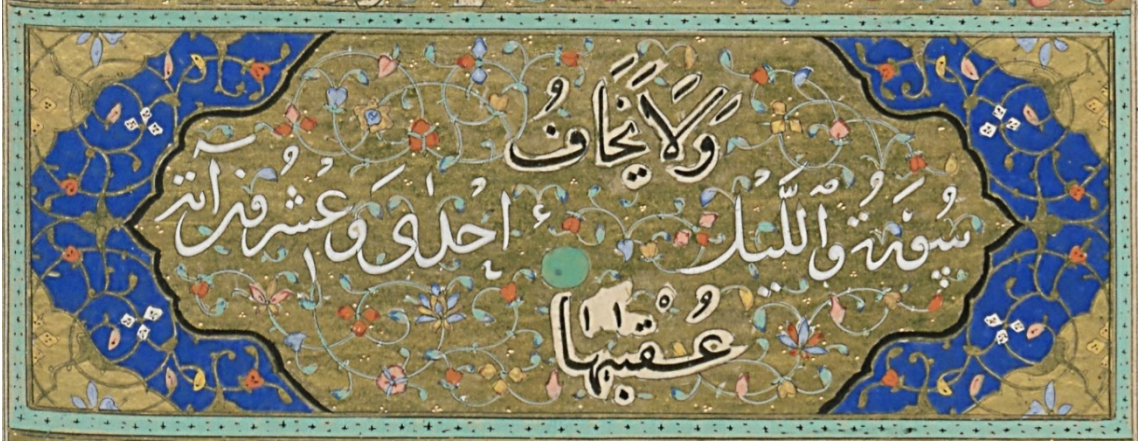 وَلَا يَخَافُ
سُورَةُ وَاللَّيْلِ إِحْدَى وَعِشْرُونَ آيَةً
عُقْبٰهَا